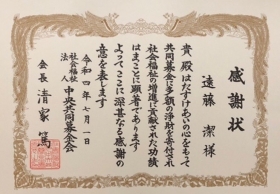 感謝状
遠藤潔様
貴殿はたすけあいの心をもって
共同募金に多額の浄財を寄付され
社会福祉の増進に貢献された功績
はまことに顕著であります
よってここに深甚なる感謝の
意を表します
令和四年七月一日
社会福祉法人 中央共同募金会
会長 清家篤